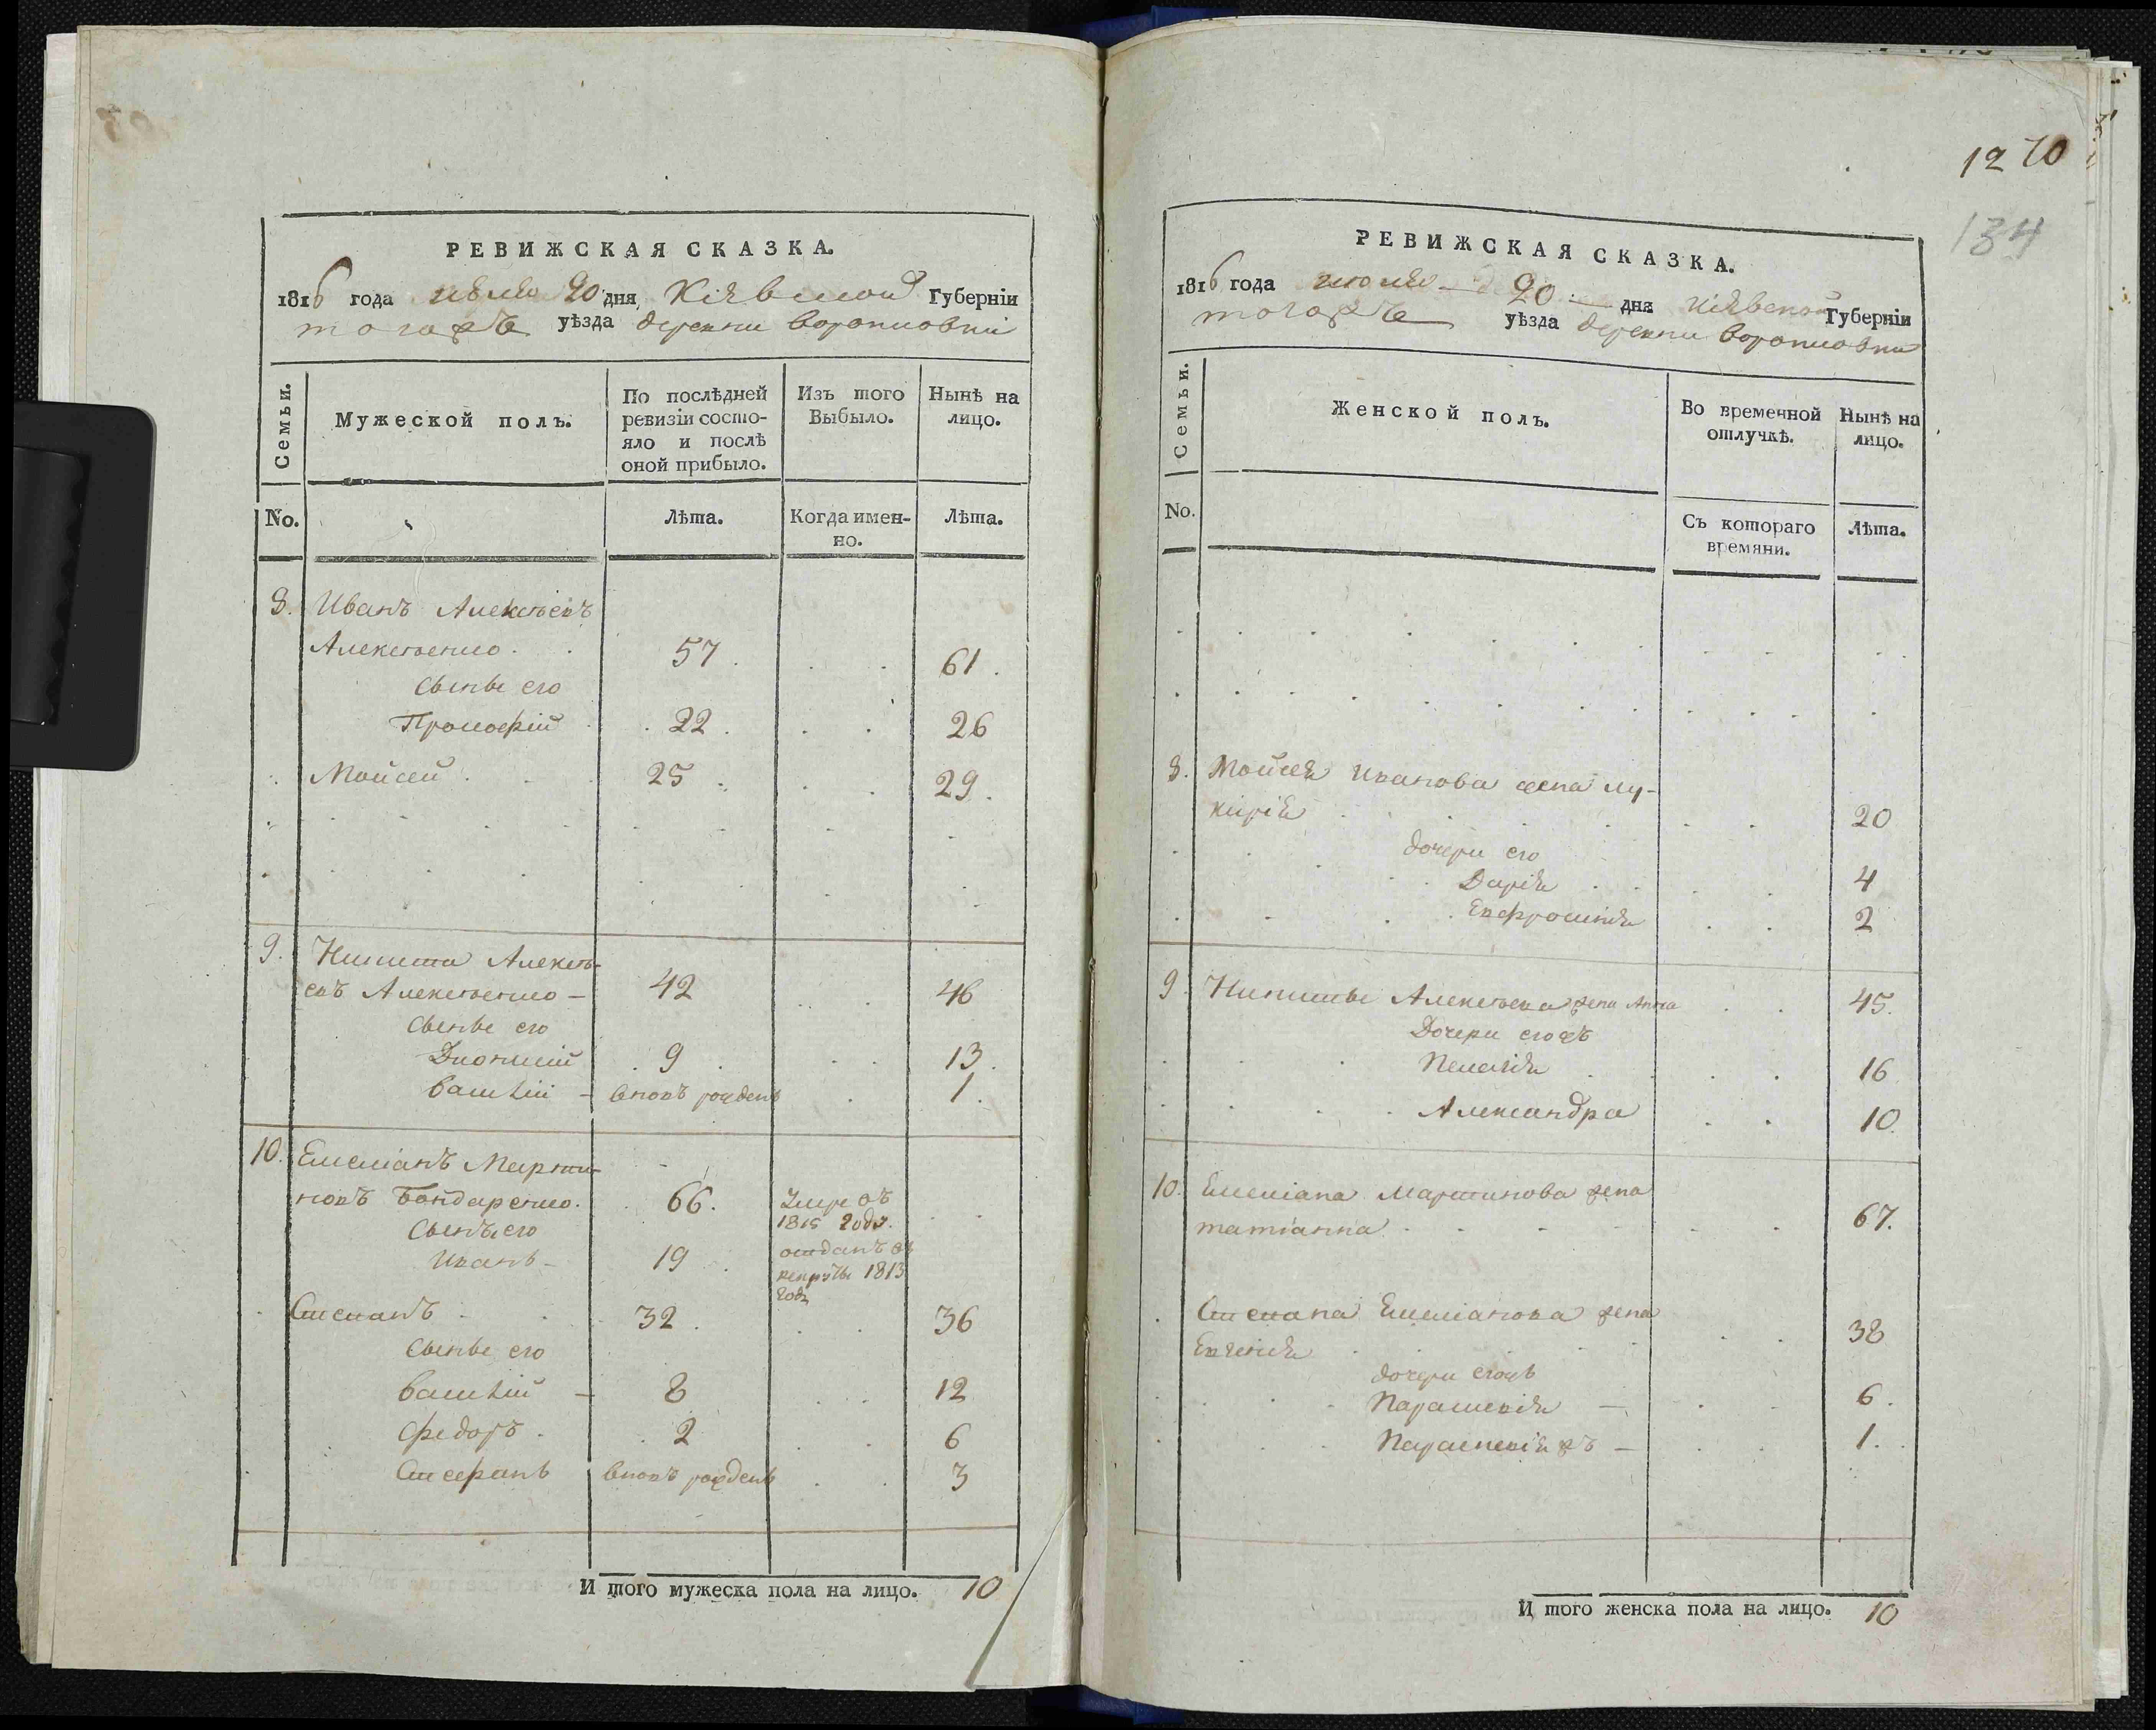 РЕВИЖСКАЯ СКАЗКА.
1816 года июля 20 дня Кіевской Губерніи
тогожъ уѣзда деревни Вороновки
Семьи.
Мужеской полъ.
По послѣдней
ревизіи состо-
яло и послѣ
оной прибыло.
Изъ того
Выбыло.
Нынѣ на
лицо.
No.
Лѣта.
Когда имен-
но.
Лѣта.
8. Иванъ Алексѣевъ
Алексѣенко 57 61
Сыны его
Прокофій 22 26
Мойсей 25 29
9. Никита Алексѣ-
евъ Алексѣенко 42 46
Сыны его
Дионисій 9 13
Василій вновь рожденъ 1
10. Емеліанъ Марти-
новъ Бондаренко 66 Умре въ
1815 году.
Сынъ его
Иванъ 19 отданъ въ
рекруты 1813
года
Степанъ 32 36
Сыны его
Василій 8 12
Федоръ 2 6
Стефанъ вновь рожденъ 3
И того мужеска пола на лицо. 10
1270
134
РЕВИЖСКАЯ СКАЗКА.
1816 года июля 20 дня Кіевской Губерніи
тогожъ уѣзда деревни Вороновки
Семьи.
Женской полъ.
Во временной
отлучкѣ.
Нынѣ на
лицо.
No.
Съ котораго
времяни.
Лѣта.
8. Мойсея Иванова жена Лу-
кирія 20
дочери его
Дарія 4
Евфросинія 2
9. Никиты Алексѣева жена Анна 45.
Дочери егожъ
Пелагія 16
Александра 10
10. Емеліана Мартинова жена
татіанна 67.
Степана Емеліанова жена
Евгенія 38
дочери егожъ
Параскевія 6.
Параскевія жъ 1.
И того женска пола на лицо. 10